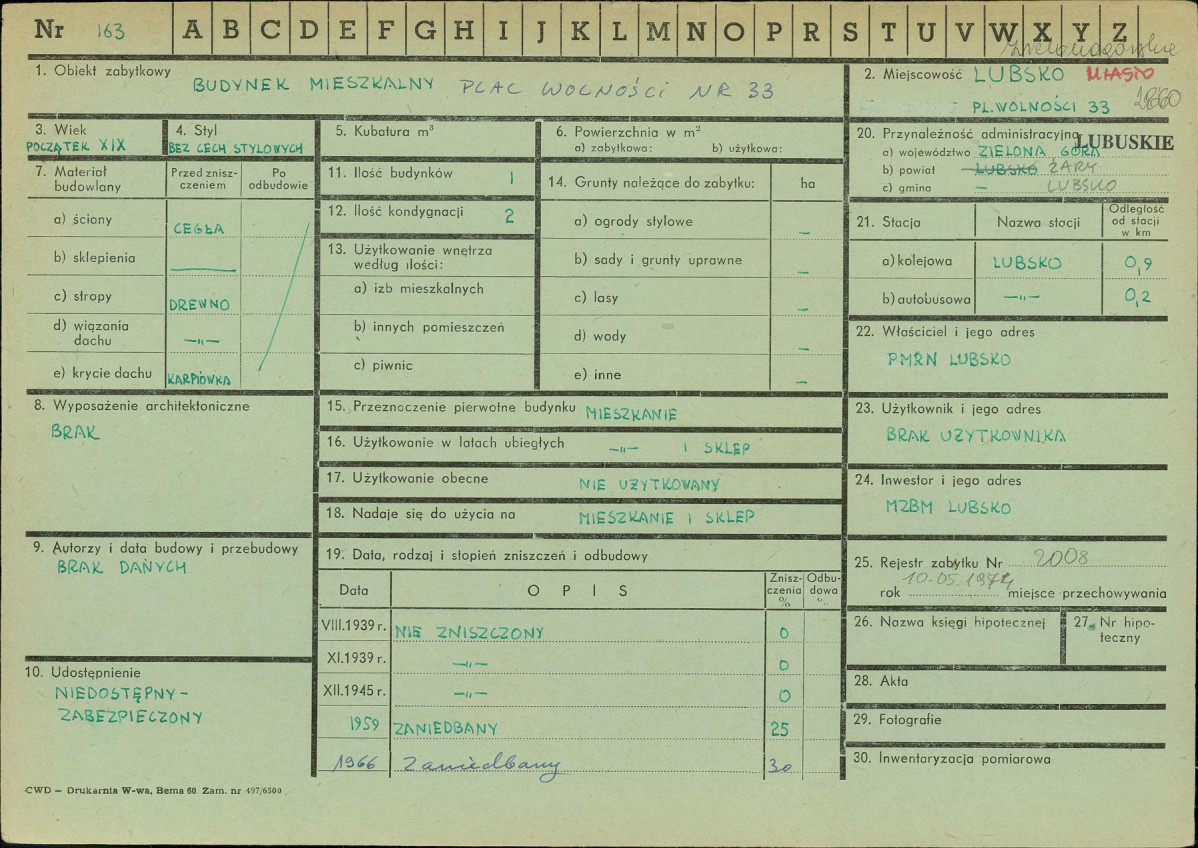 Nr 163 A B C D E F G H I J K L M N O P R S T U V W X Y Z
1. Obiekt zabytkowy
BUDYNEK MIESZKALNY PLAC WOLNOŚCI NR 33
2. Miejscowość LUBSKO MIASTO
PL. WOLNOŚCI 33
3. Wiek
POCZĄTEK XIX
4. Styl
BEZ CECH STYLOWYCH
5. Kubatura m³
6. Powierzchnia w m²
a) zabytkowa: b) użytkowa:
7. Materiał budowlany
Przed zniszczeniem
Po odbudowie
a) ściany CEGŁA
b) sklepienia ———
c) stropy DREWNO
d) wiązania dachu —„—
e) krycie dachu KARPIÓWKA
11. Ilość budynków 1
12. Ilość kondygnacji 2
13. Użytkowanie wnętrza według ilości:
a) izb mieszkalnych
b) innych pomieszczeń
c) piwnic
14. Grunty należące do zabytku: ha
a) ogrody stylowe —
b) sady i grunty uprawne —
c) lasy —
d) wody —
e) inne —
20. Przynależność administracyjna LUBUSKIE
a) województwo ZIELONA GÓRA
b) powiat LUBSKO ŻARY
c) gmina — LUBSKO
21. Stacja Nazwa stacji Odległość od stacji w km
a) kolejowa LUBSKO 0,9
b) autobusowa —„— 0,2
22. Właściciel i jego adres
PMRN LUBSKO
8. Wyposażenie architektoniczne
BRAK
15. Przeznaczenie pierwotne budynku MIESZKANIE
16. Użytkowanie w latach ubiegłych —„— I SKLEP
17. Użytkowanie obecne NIE UŻYTKOWANY
18. Nadaje się do użycia na MIESZKANIE I SKLEP
23. Użytkownik i jego adres
BRAK UŻYTKOWNIKA
24. Inwestor i jego adres
MZBM LUBSKO
9. Autorzy i data budowy i przebudowy
BRAK DANYCH
10. Udostępnienie
NIEDOSTĘPNY –
ZABEZPIECZONY
19. Data, rodzaj i stopień zniszczeń i odbudowy
Data OPIS Zniszczenia % Odbudowa %
VIII.1939 r. NIE ZNISZCZONY 0
XI.1939 r. —„— 0
XII.1945 r. —„— 0
1959 ZANIEDBANY 25
1966 Zaniedbany 30
25. Rejestr zabytku Nr 2008
rok 10.05.1974 miejsce przechowywania
26. Nazwa księgi hipotecznej
27. Nr hipoteczny
28. Akta
29. Fotografie
30. Inwentaryzacja pomiarowa
CWD – Drukarnia W-wa, Bema 60. Zam. nr 497/6500